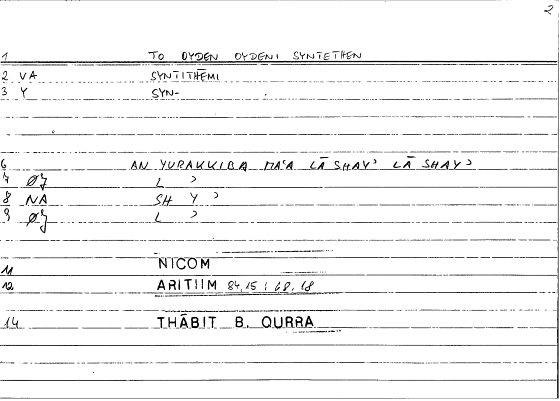 2
1 TO OYDEN OYDENI SYNTETHEN
2 VA SYNTITHĒMI
3 Y SYN-
6 AN YURAKKIBA MA'A LĀ SHAYʾ LĀ SHAYʾ
7 ØJ L ʾ
8 NA SH Y ʾ
9 ØJ L ʾ
11 NICOM
12 ARITIIM 84,15 ; 68,18
14 THĀBIT B. QURRA